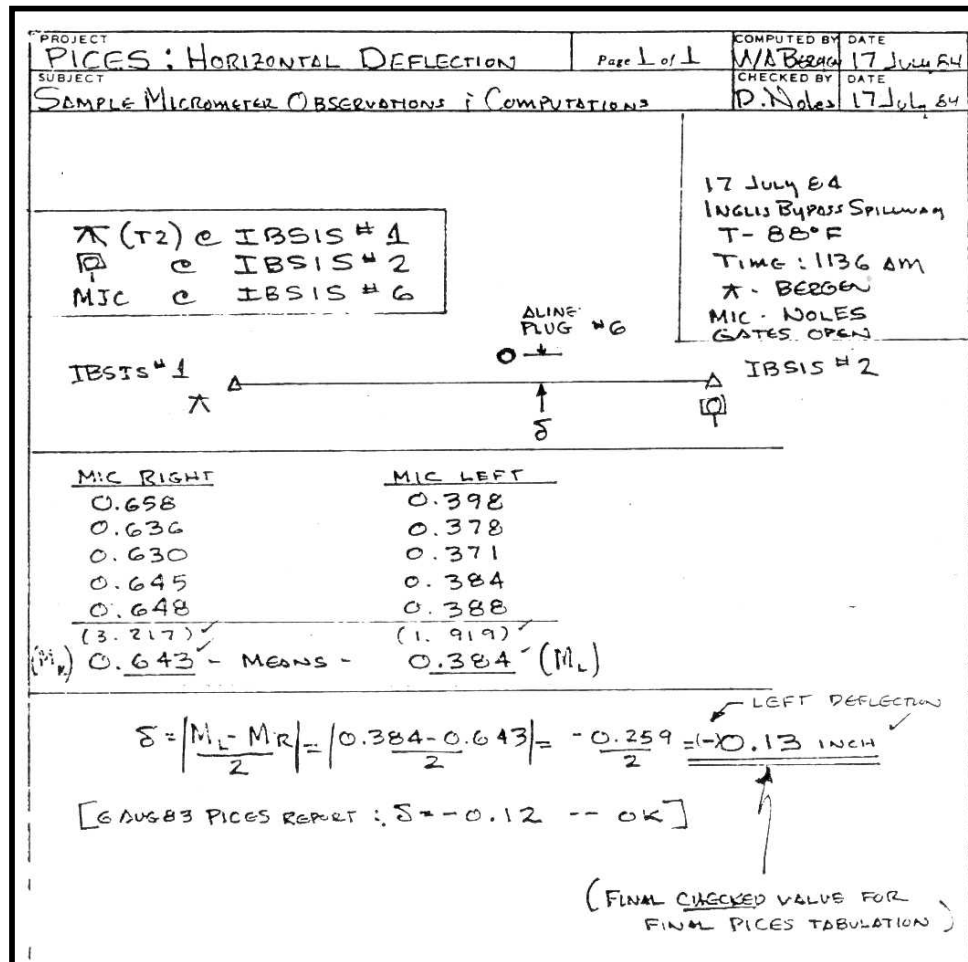 PROJECT
PICES : HORIZONTAL DEFLECTION
Page 1 of 1
COMPUTED BY
WABergen
DATE
17 July 84
SUBJECT
SAMPLE MICROMETER OBSERVATIONS & COMPUTATIONS
CHECKED BY
D. Noles
DATE
17 July 84
17 JULY 84
INGLIS BYPASS SPILLWAY
T- 88°F
TIME : 1136 AM
⊼ - BERGEN
MIC - NOLES
GATES OPEN
⊼ (T2) @ IBSIS # 1
@ IBSIS # 2
MIC @ IBSIS # 6
ALINE
PLUG #6
IBSIS #1
IBSIS #2
δ
MIC RIGHT MIC LEFT
0.658 0.398
0.636 0.378
0.630 0.371
0.645 0.384
0.648 0.388
(3.217) ✓ (1.919) ✓
(MR) 0.643 ✓ - MEANS - 0.384 ✓ (ML)
LEFT DEFLECTION
δ = |ML - MR / 2| = |0.384 - 0.643 / 2| = -0.259 / 2 = (-)0.13 INCH ✓
[6 AUG 83 PICES REPORT : δ = -0.12 -- OK]
(FINAL CHECKED VALUE FOR
FINAL PICES TABULATION)